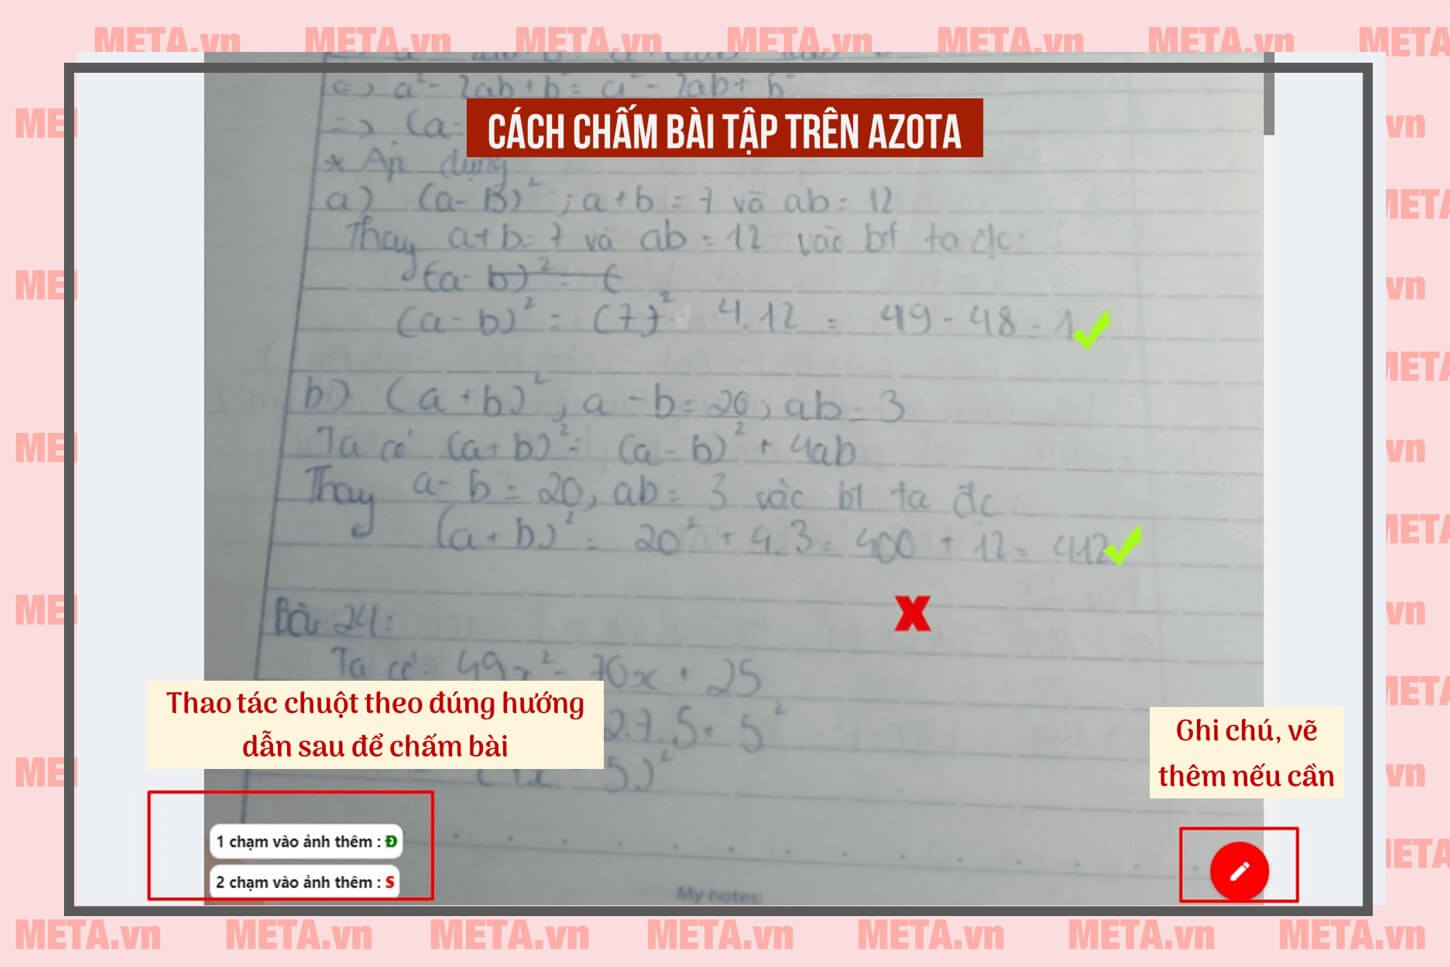 META.vn META.vn META.vn META.vn META.vn META.vn META
=> a² - 2ab + b² = a² - 2ab + b²
=> (a-
CÁCH CHẤM BÀI TẬP TRÊN AZOTA
* Áp dụng
a) (a-B)² ; a+b = 7 và ab = 12
Thay a+b=7 và ab = 12 vào bt ta đc:
(a-b)² = (
(a-b)² = (7)² 4.12 = 49 - 48 = 1
b) (a+b)², a-b = 20, ab = 3
Ta có (a+b)² = (a-b)² + 4ab
Thay a-b = 20, ab = 3 vào bt ta đc
(a+b)² = 20² + 4.3 = 400 + 12 = 412
X
Bài 24:
Ta có: 49x² - 70x + 25
Thao tác chuột theo đúng hướng
dẫn sau để chấm bài
2.7.5+ 5²
5)²
Ghi chú, vẽ
thêm nếu cần
1 chạm vào ảnh thêm : Đ
2 chạm vào ảnh thêm : S
My notes:
META.vn META.vn META.vn META.vn META.vn META.vn META.vn